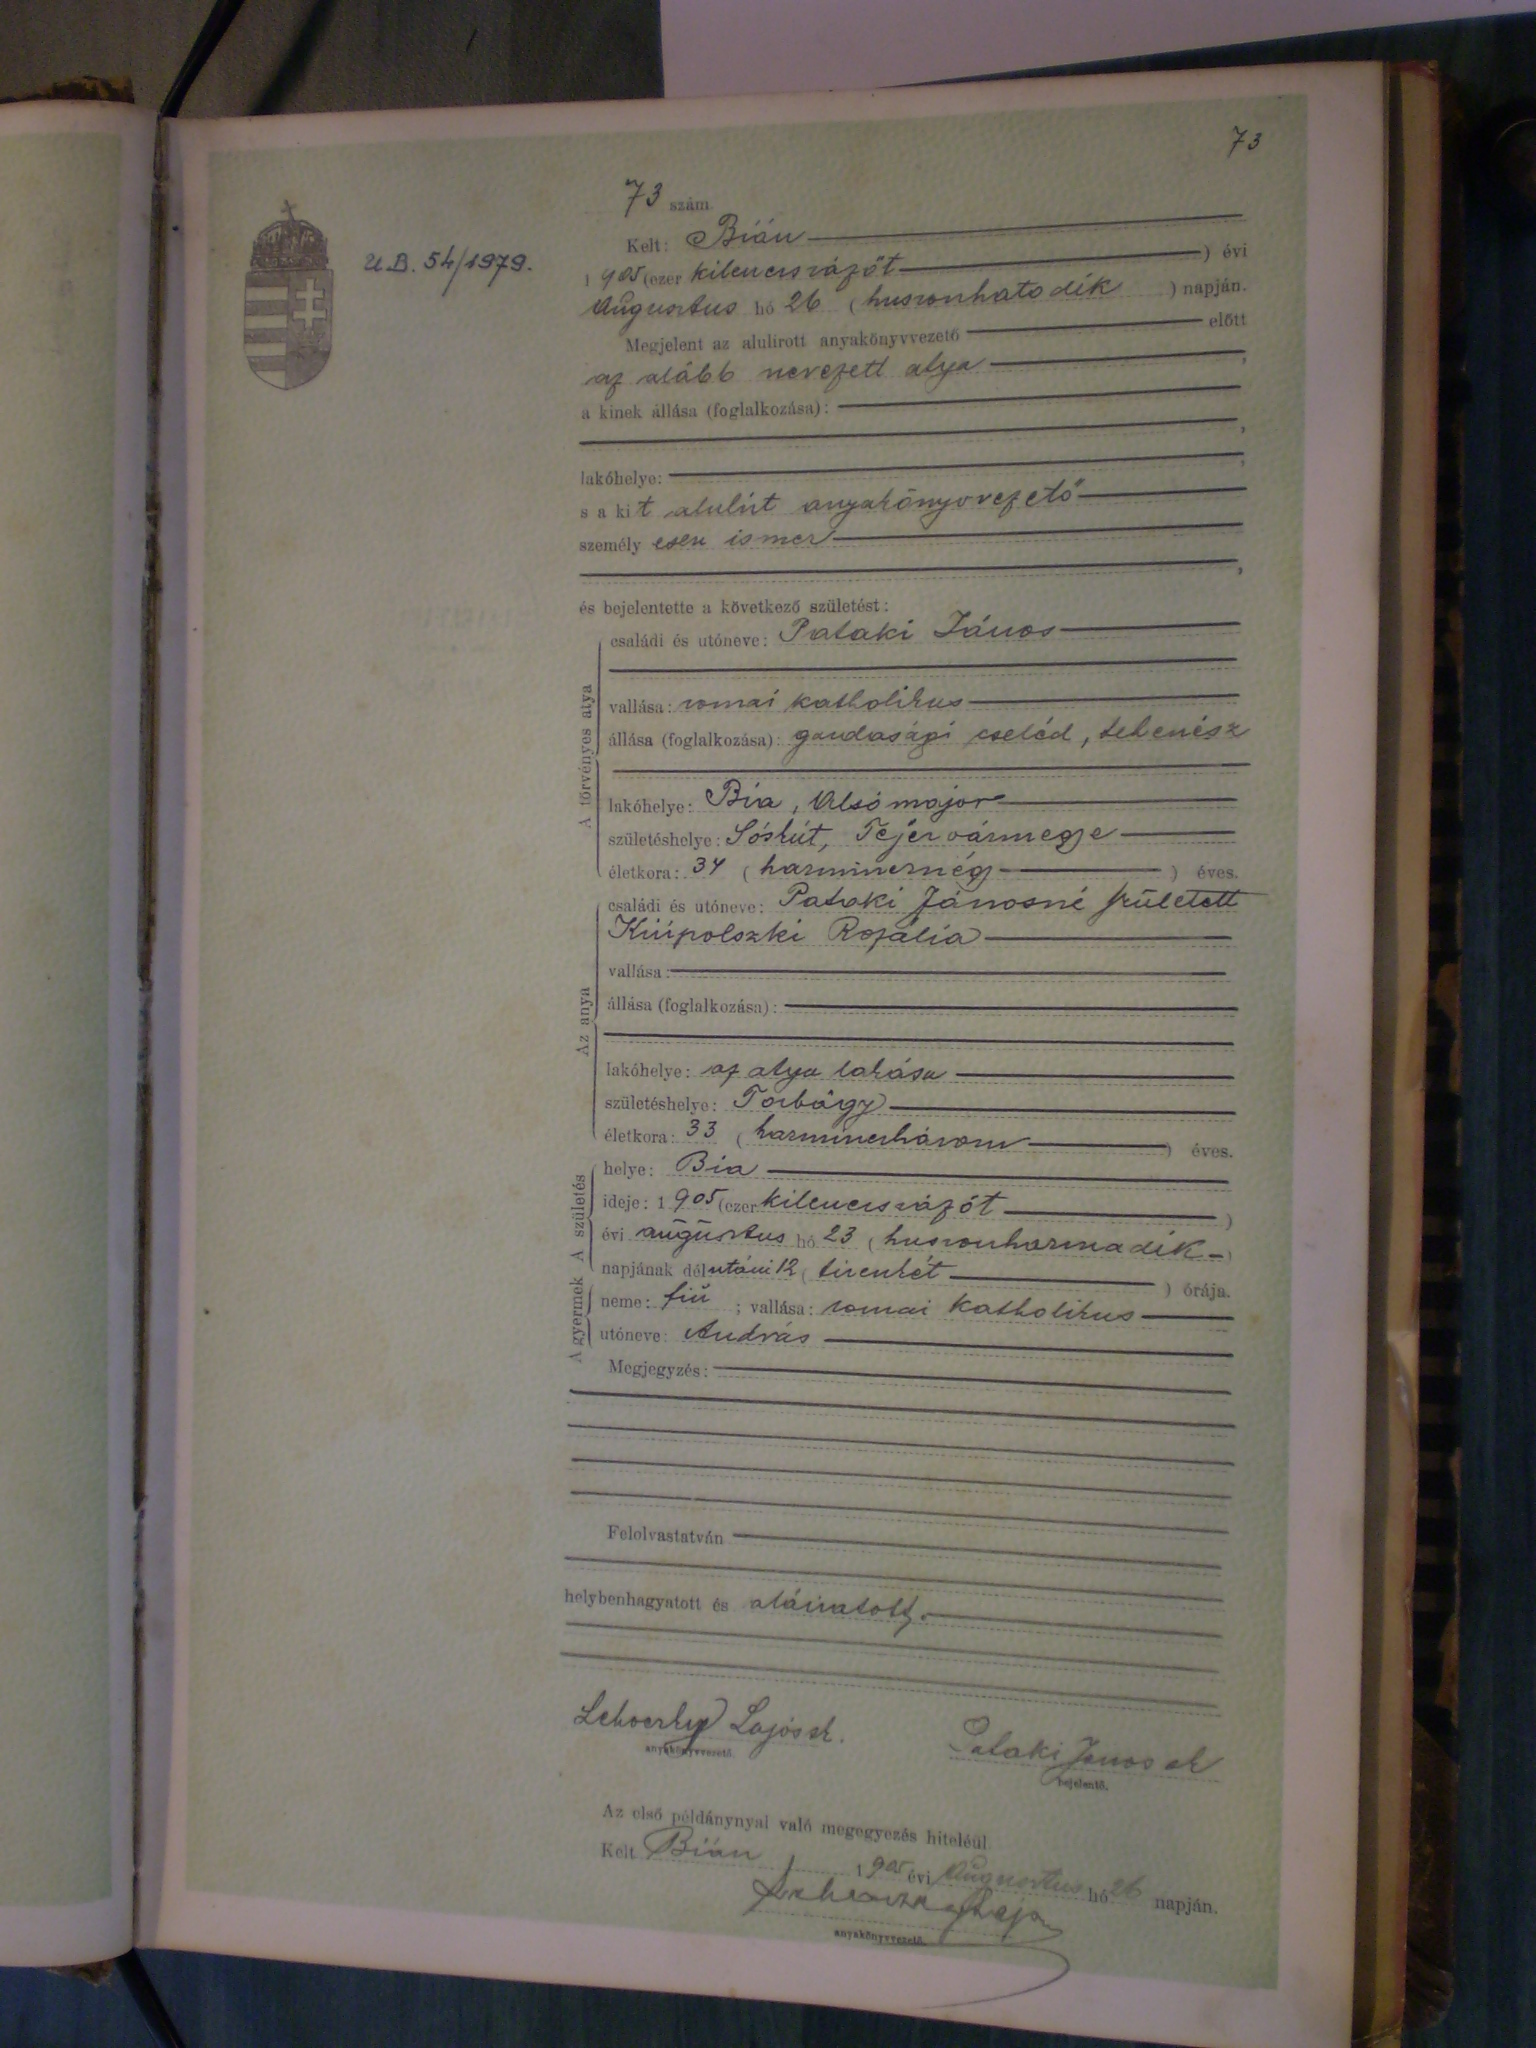 73
73 szám.
U.B. 54/1979.
Kelt: Bián
1905 (ezer kilencszázöt ) évi
Augusztus hó 26 (huszonhatodik ) napján.
Megjelent az alulirott anyakönyvvezető előtt
az alább nevezett atya ,
a kinek állása (foglalkozása):
,
lakóhelye: ,
s a kit alulirt anyakönyvvezető
személyesen ismer
,
és bejelentette a következő születést:
A törvényes atya
családi és utóneve: Pataki János
vallása: romai katholikus
állása (foglalkozása): gazdasági cseléd, tehenész
lakóhelye: Bia, Alsómajor
születéshelye: Sóskút, Fejérvármegye
életkora: 34 (harmincnégy ) éves.
Az anya
családi és utóneve: Pataki Jánosné született
Rozália
vallása:
állása (foglalkozása):
lakóhelye: az atya lakása
születéshelye: Torbágy
életkora: 33 (harminczhárom ) éves.
A születés
helye: Bia
ideje: 1905 (ezer kilencszázöt )
évi augusztus hó 23 (huszonharmadik )
napjának délutáni 12 (tizenkét ) órája.
A gyermek
neme: fiú ; vallása: romai katholikus
utóneve: András
Megjegyzés:
Felolvastatván
helybenhagyatott és aláiratott.
Lehoczky Lajos sk. Pataki János sk
anyakönyvvezető. bejelentő.
Az első példánynyal való megegyezés hiteléül
Kelt Bián 1905 évi Augusztus hó 26 napján.
Lehoczky Lajos
anyakönyvvezető.